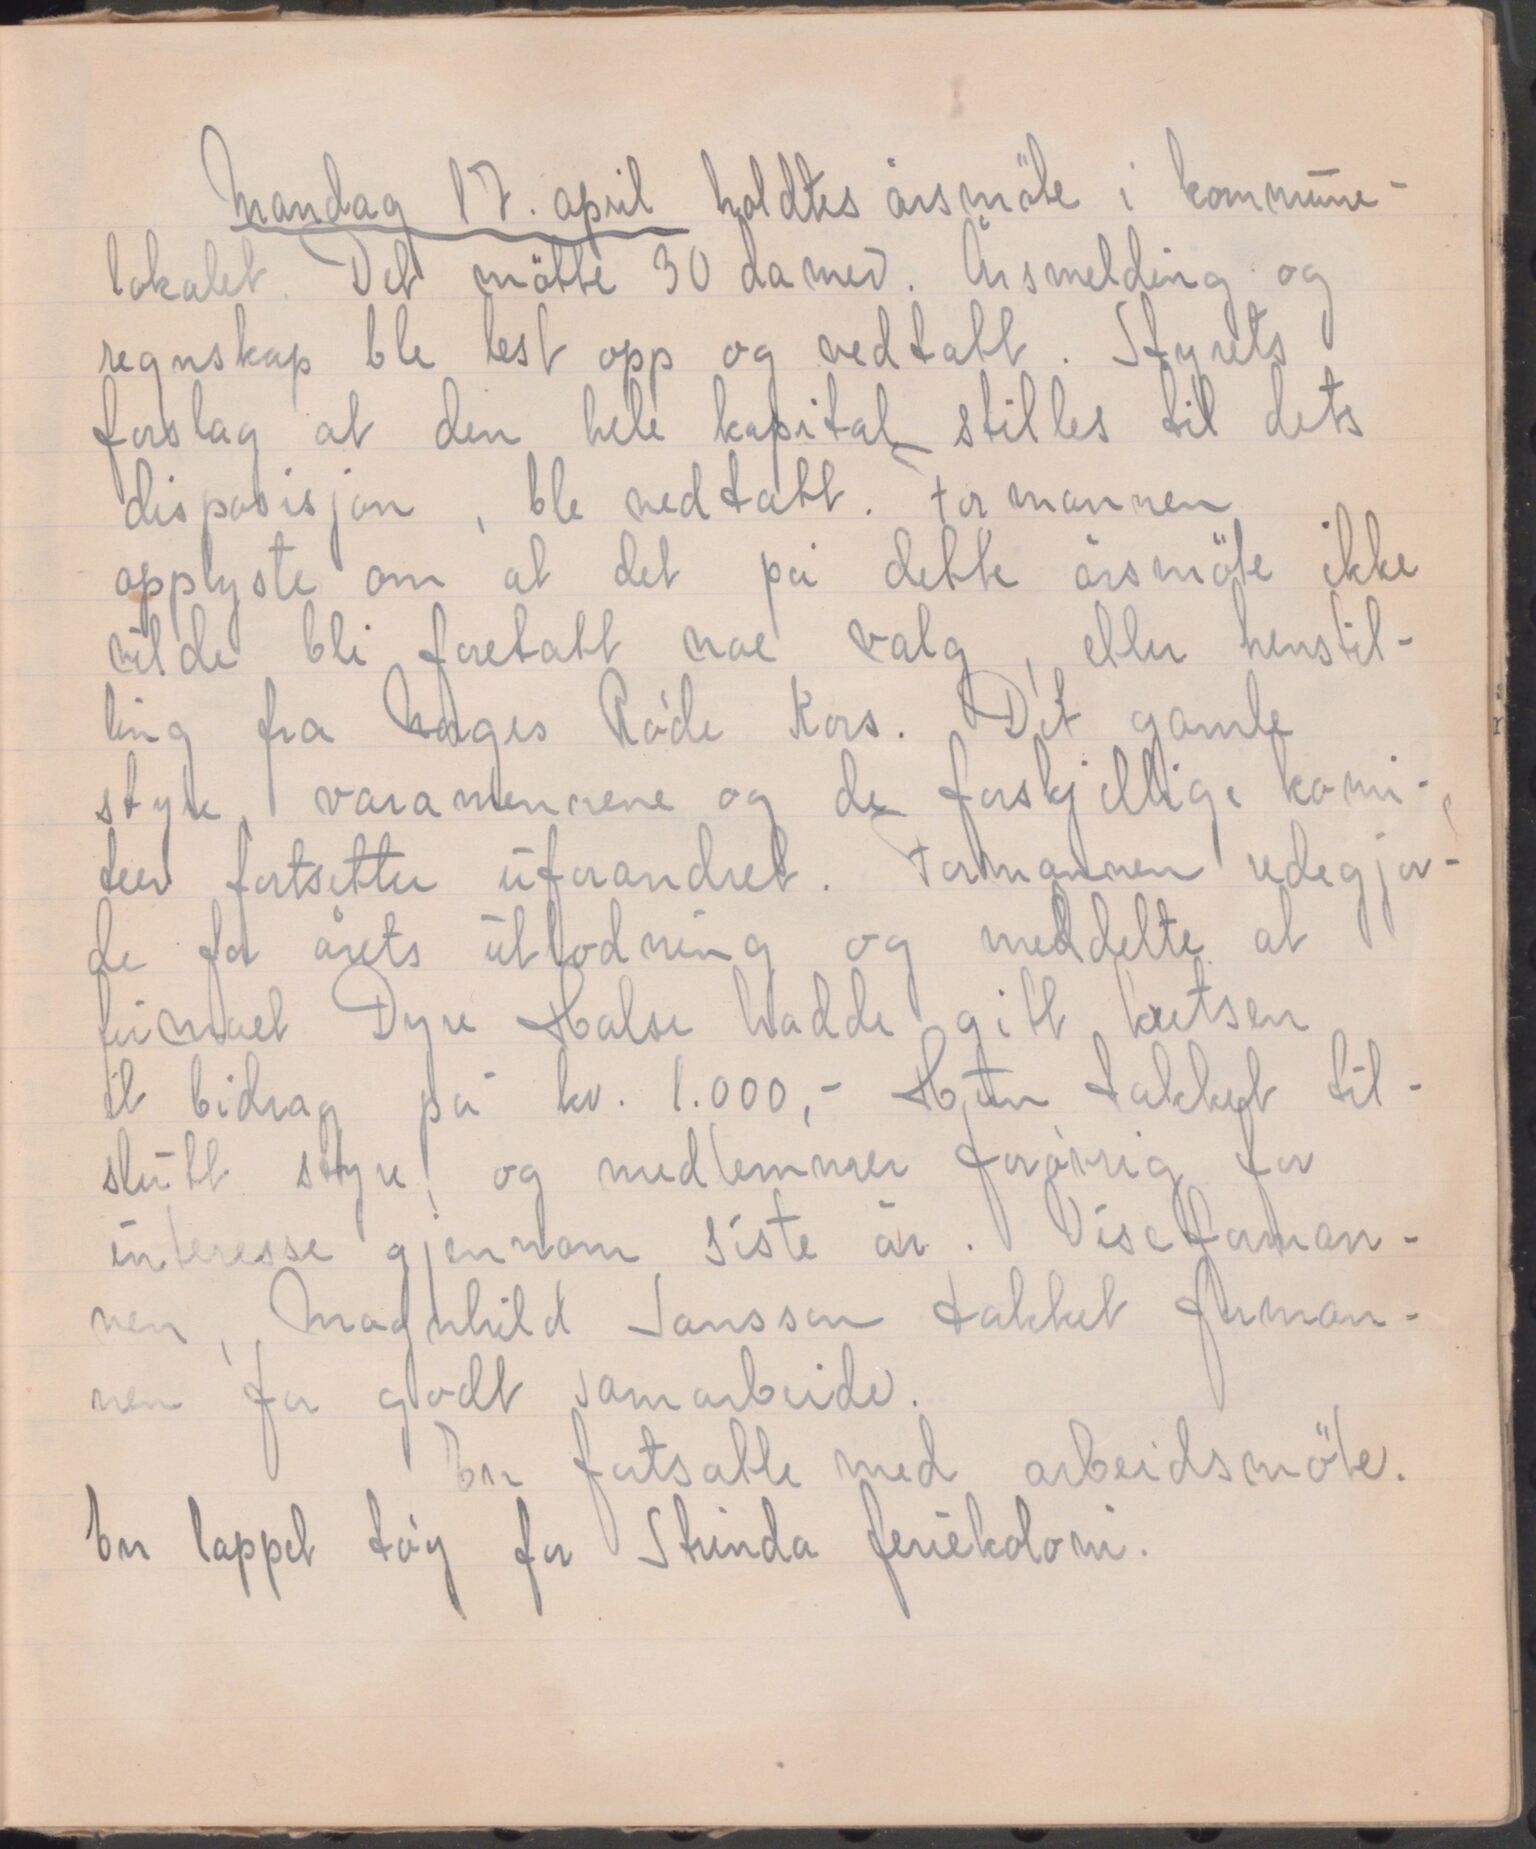 Mandag 17. april holdtes årsmöte i kommune-
lokalet. Det mötte 30 damer. Årsmelding og
regnskap ble lest opp og vedtatt. Styrets
forslag at den hele kapital stilles til dets
disposisjon, ble vedtatt. Formannen
opplyste om at det på dette årsmöte ikke
vilde bli foretatt noe valg, etter henstil-
ling fra Norges Røde Kors. Det gamle
styre, varamennene og de forskjellige komi-
teer fortsetter uforandret. Formannen redegjor-
de for årets utlodning og meddelte at
firmaet Dyre Halse hadde gitt kretsen
et bidrag på kr. 1.000,- Hun takket til-
slutt styre og medlemmer forøvrig for
interesse gjennom siste år. Viseforman-
nen, Magnhild Jansson takket forman-
nen for godt samarbeide.
En fortsatte med arbeidsmöte.
En lappet tøy for Strinda feriekoloni.